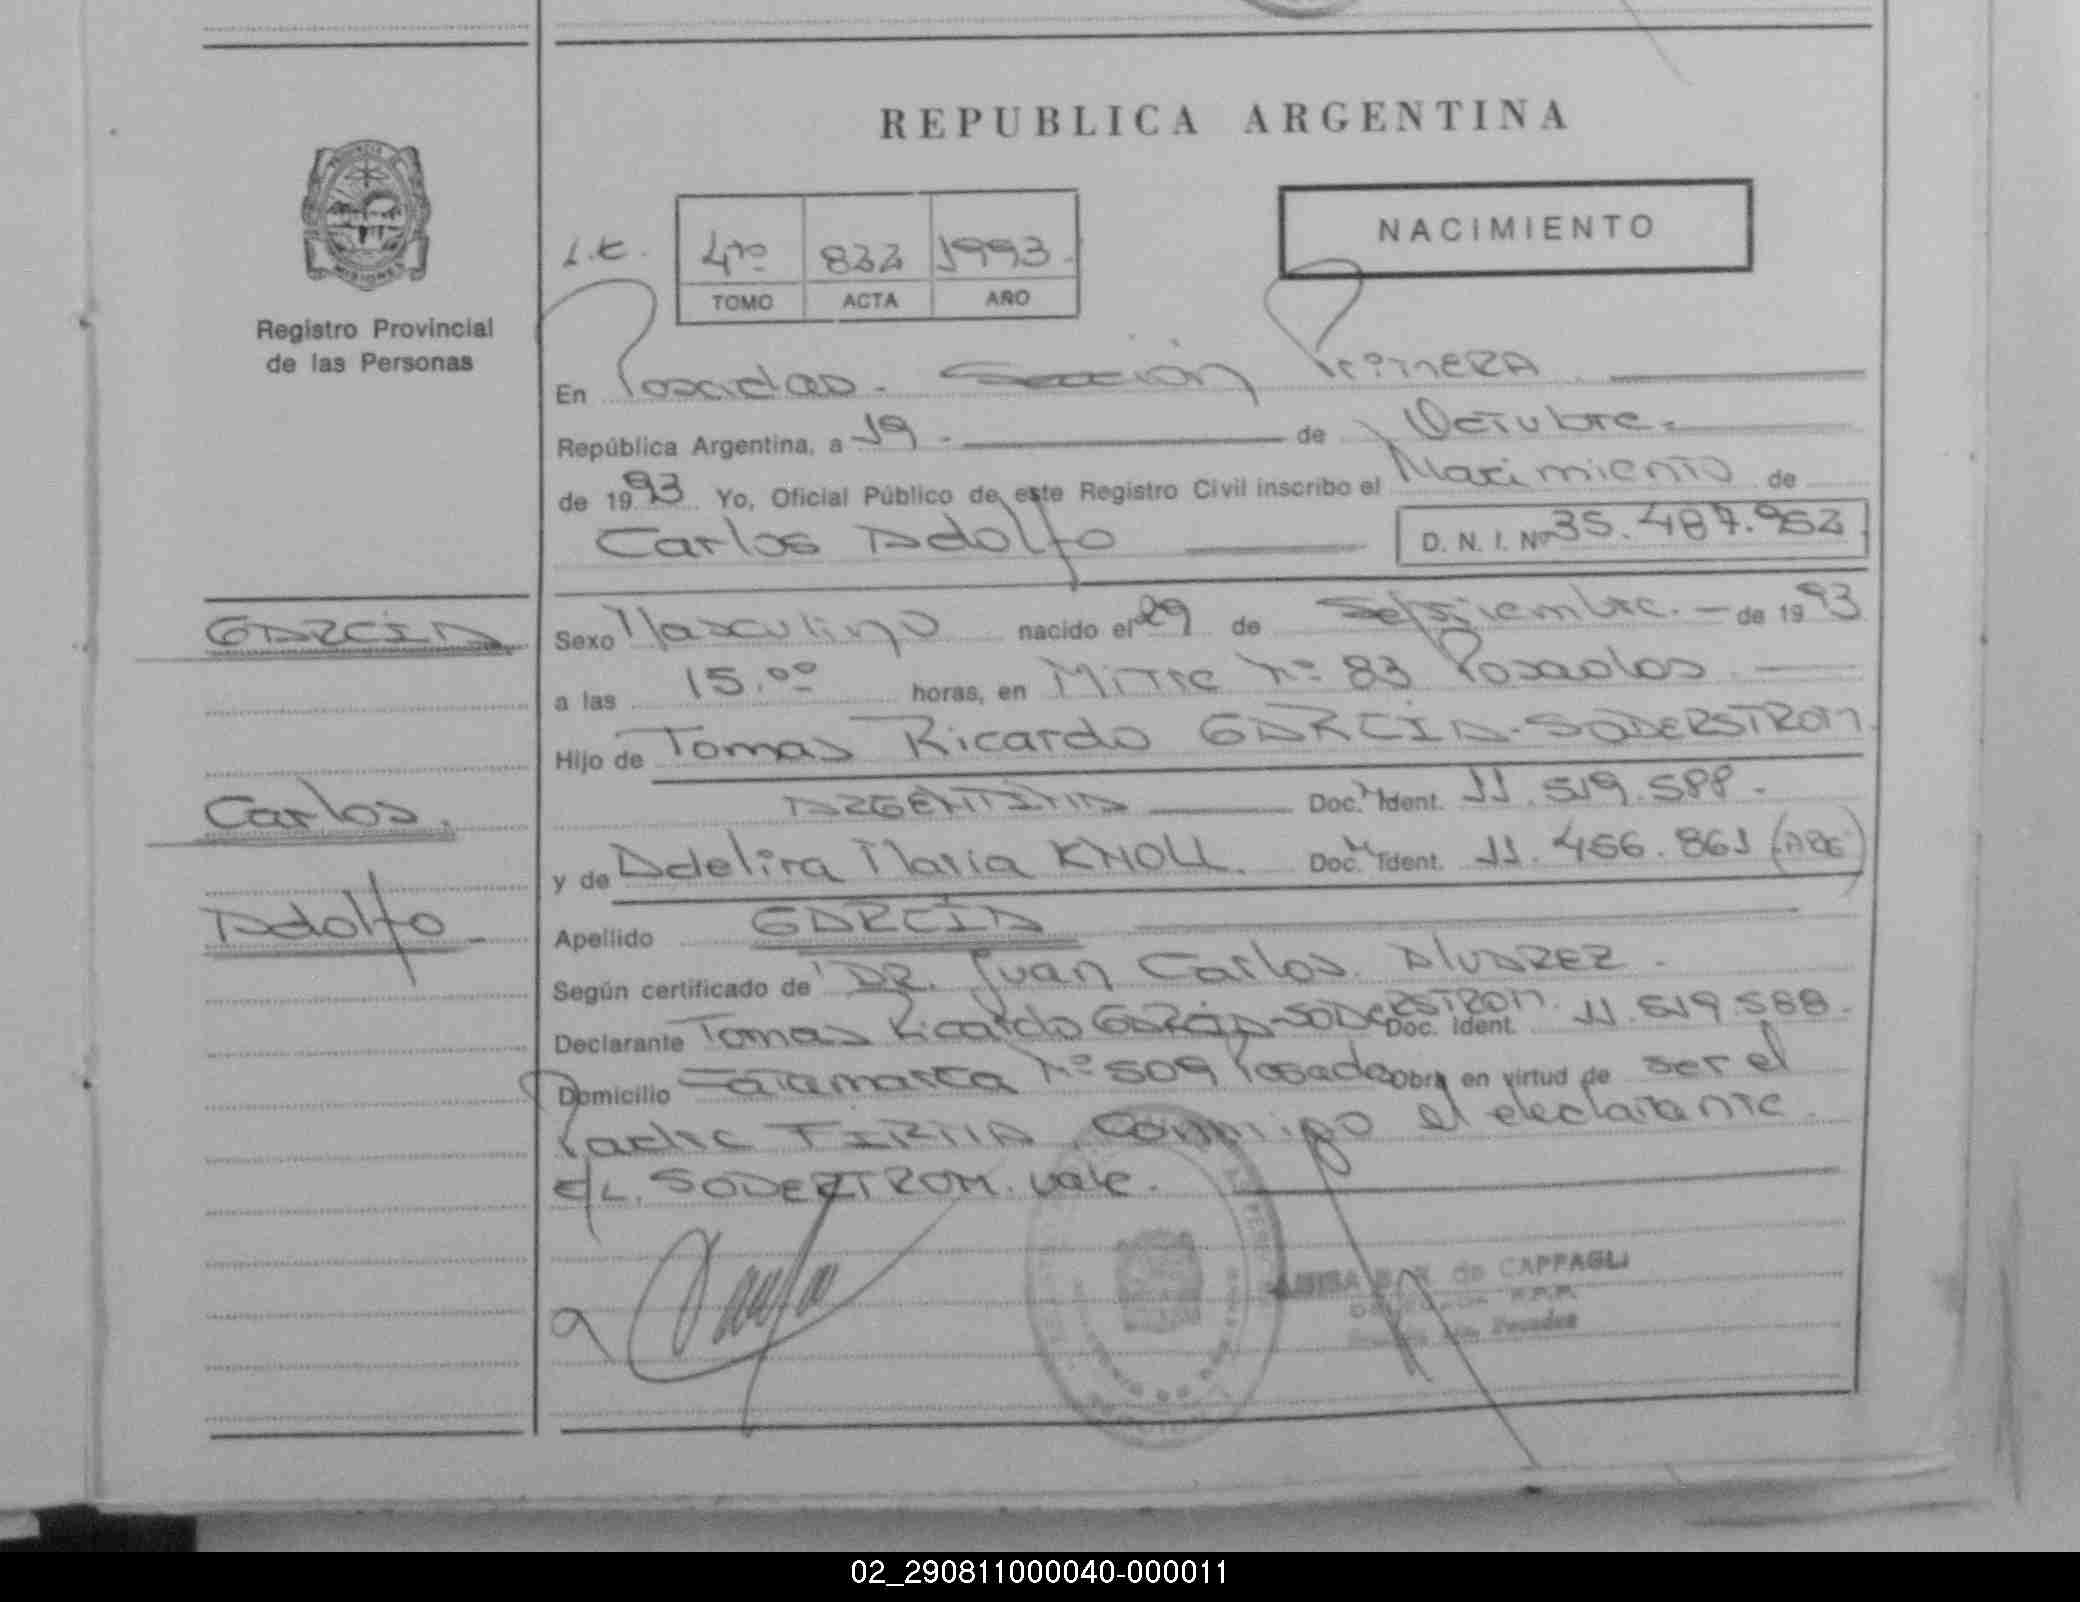 REPUBLICA ARGENTINA
PROVINCIA DE
MISIONES
Registro Provincial
de las Personas
L.E.
4to 822 1993.
TOMO ACTA AÑO
NACIMIENTO
En Posadas. Sección Primera
República Argentina, a 19. de Octubre.
de 1993 Yo, Oficial Público de este Registro Civil inscribo el Nacimiento de
Carlos Adolfo D. N. I. Nº 35.487.952
GARCIA
Sexo Masculino nacido el 29 de Septiembre. — de 1993
a las 15.00 horas, en Mitre Nº 83 Posadas
Hijo de Tomas Ricardo GARCIA-SODERSTROM
ARGENTINA Doc. N. Ident. 11.519.588.
Carlos.
y de Adelira Maria KNOLL. Doc. N. Ident. 11.456.861 (ARG)
Adolfo
Apellido GARCIA
Según certificado de DR. Juan Carlos ALVAREZ.
Declarante Tomas Ricardo GARCIA-SODERSTROM Doc. Ident. 11.519.588.
Domicilio Catamarca Nº 509 Posadas Obra en virtud de ser el
Padre FIRMA conmigo el declarante.
E/L. SODERSTROM. vale.
de CAPPAGLI
Posadas
02_290811000040-000011